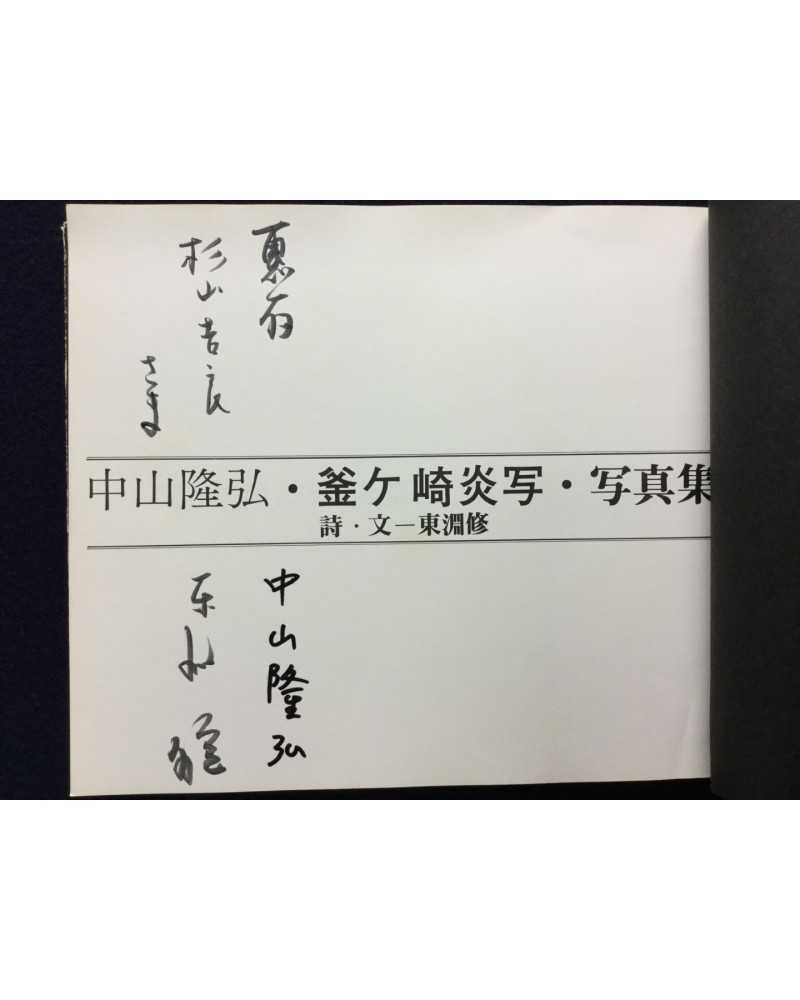 恵存
杉山吉良
さま
中山隆弘・釜ケ崎炎写・写真集
詩・文―東淵修
中山隆弘
東淵修